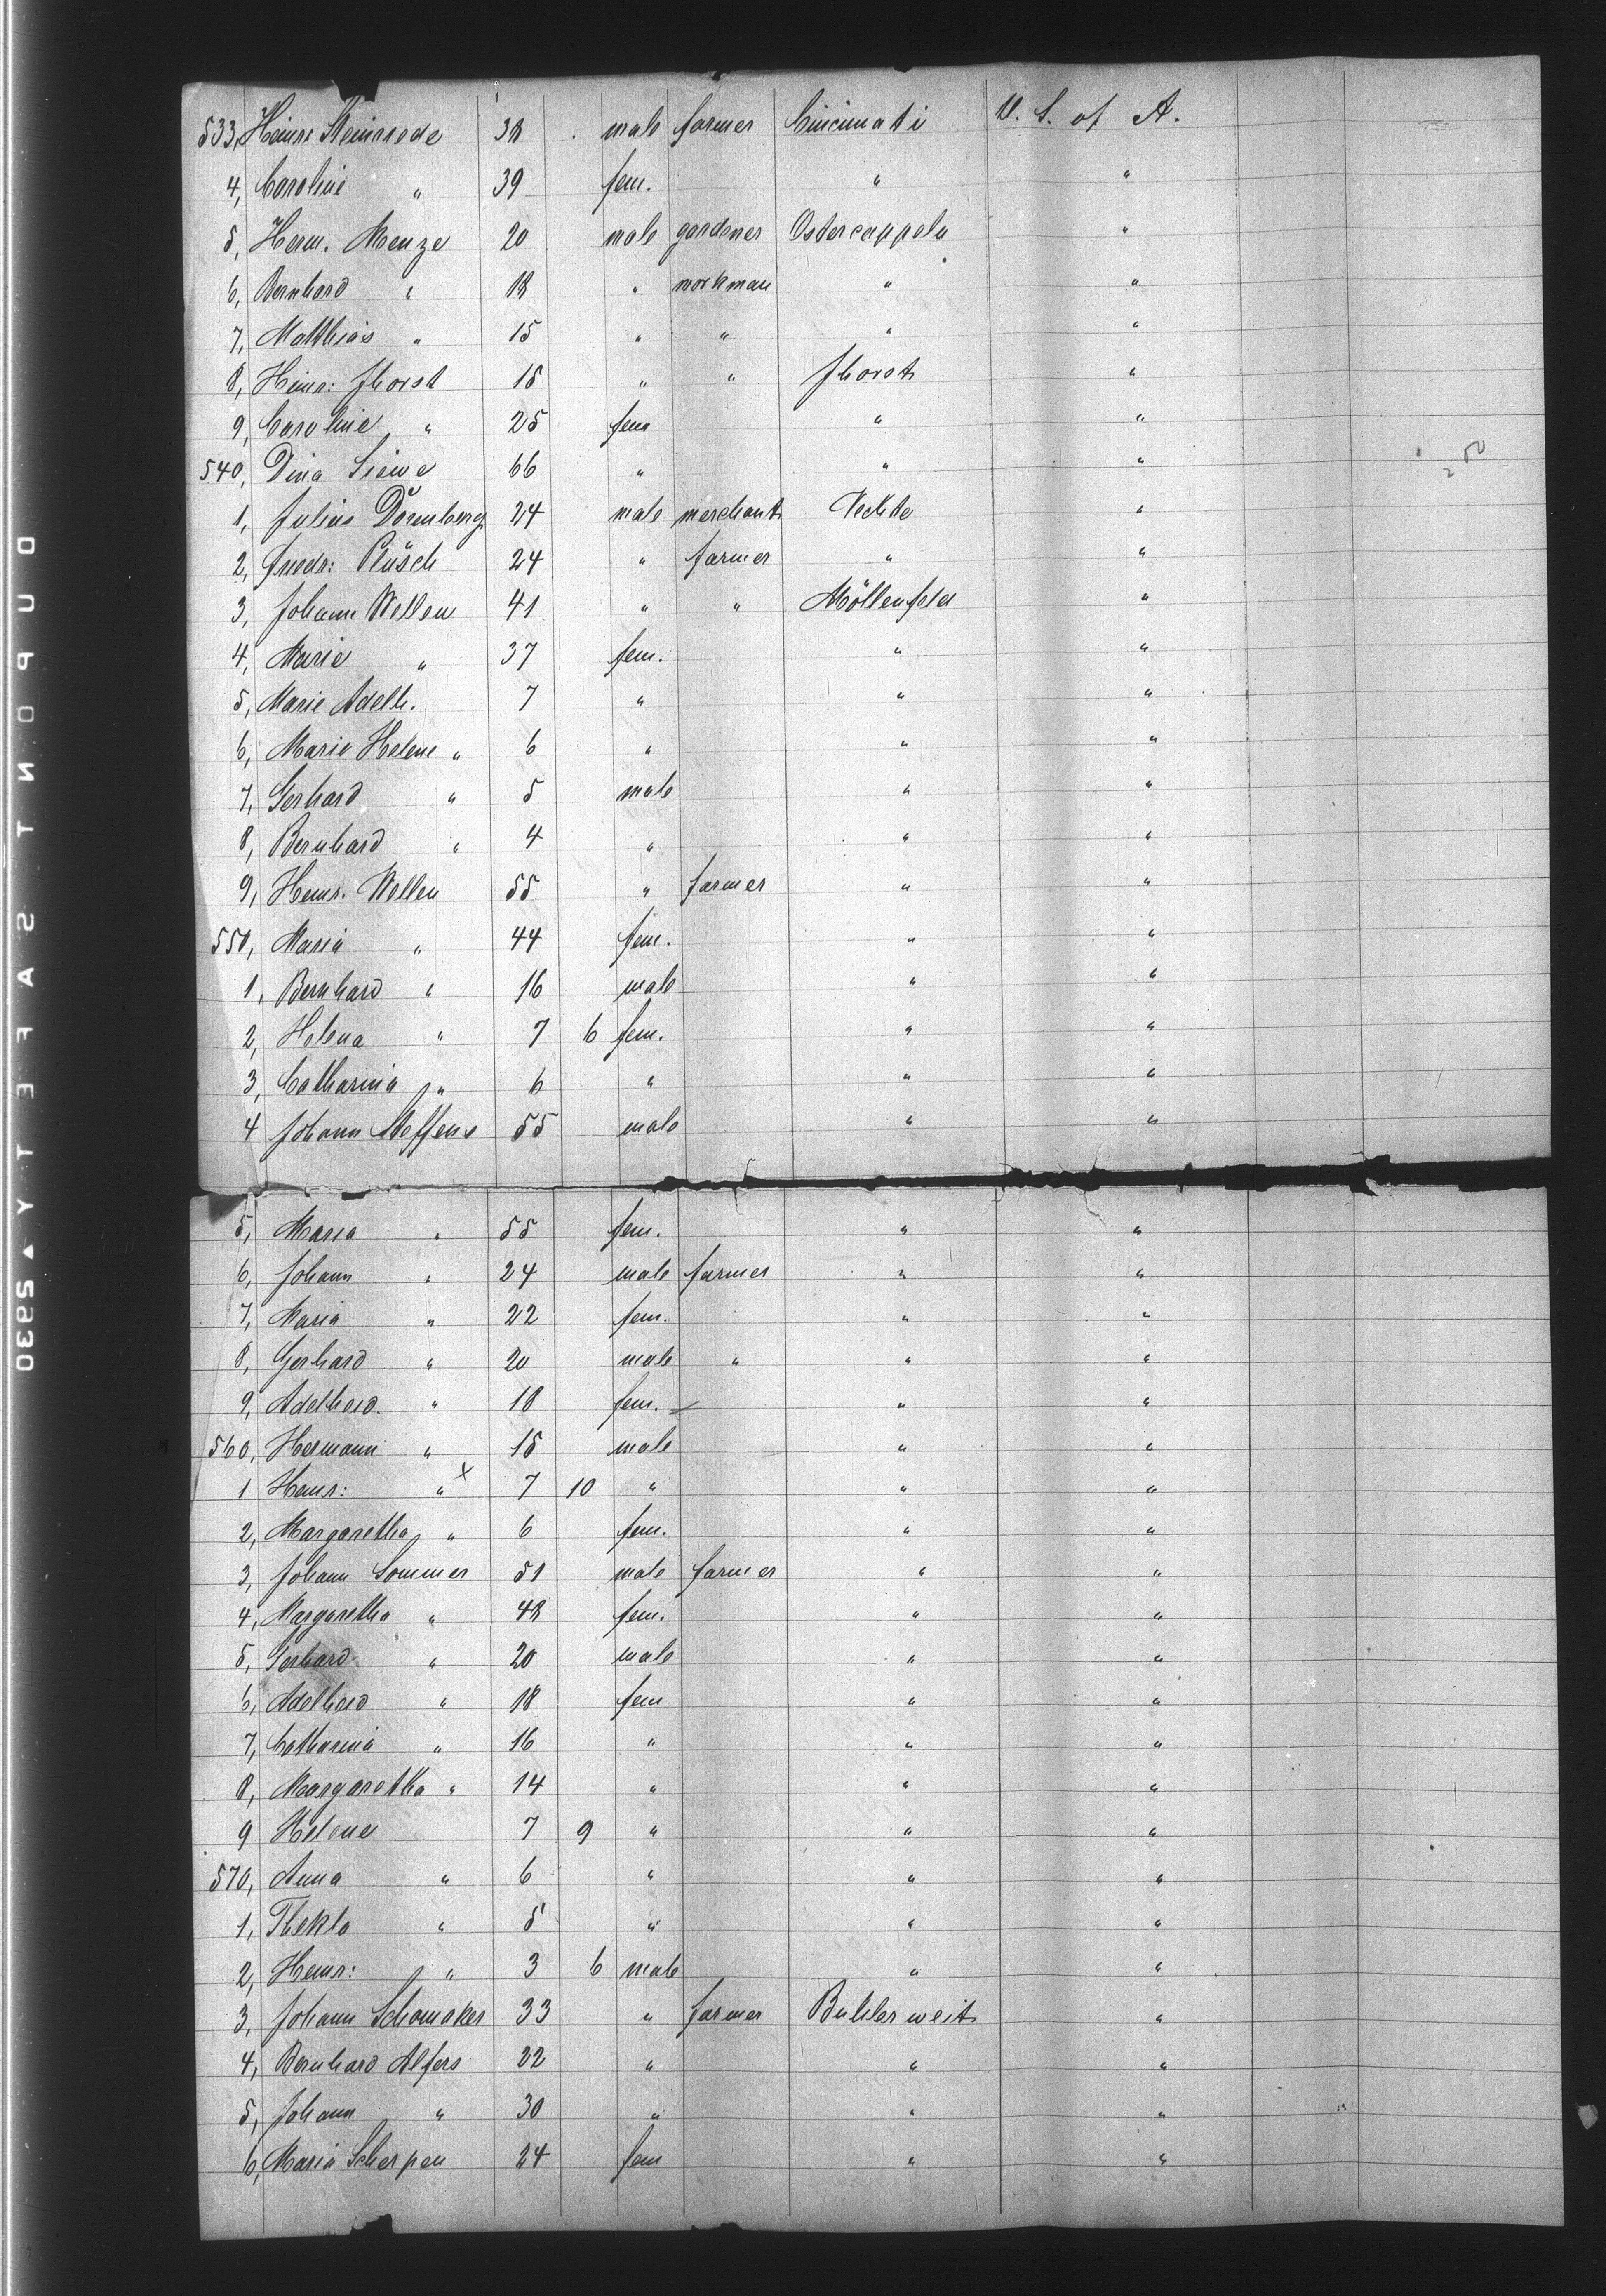 533, Heinr. Steinriede 38 male farmer Cincinnati U. S. of A.
4, Caroline " 39 fem. " "
5, Herm. Menze 20 male gardener Ostercappeln "
6, Bernhard " 18 " workman " "
7, Matthias " 15 " " " "
8, Heinr: Horst 15 " " Horst "
9, Caroline " 25 fem " "
540, Dina Siewe 66 " " "
1, Julius Dörenberg 24 male merchant Vechte "
2, Friedr: Plüsch 24 " farmer " "
3, Johann Wellen 41 " " Möllenfeld "
4, Marie " 37 fem. " "
5, Marie Adelh. 7 " " "
6, Marie Helene " 6 " " "
7, Gerhard " 5 male " "
8, Bernhard " 4 " " "
9, Heinr. Wellen 55 " farmer " "
550, Maria " 44 fem. " "
1, Bernhard " 16 male " "
2, Helena " 7 6 fem. " "
3, Catharina " 6 " " "
4 Johann Steffens 55 male " "
5, Maria " 55 fem. " "
6, Johann " 24 male farmer " "
7, Maria " 22 fem. " "
8, Gerhard " 20 male " " "
9, Adelheid " 18 fem. " "
560, Hermann " 15 male " "
1 Heinr: " x 7 10 " " "
2, Margaretha " 6 fem. " "
3, Johann Sommer 51 male farmer " "
4, Margaretha " 48 fem. " "
5, Gerhard " 20 male " "
6, Adelheid " 18 fem " "
7, Catharina " 16 " " "
8, Margaretha " 14 " " "
9 Helene 7 9 " " "
570, Anna " 6 " " "
1, Thekla " 5 " " "
2, Heinr: " 3 6 male " "
3, Johann Schomaker 33 " farmer "
4, Bernhard Alfers 22 " " "
5, Johann " 30 " " "
6, Maria Scherpen 24 fem " "